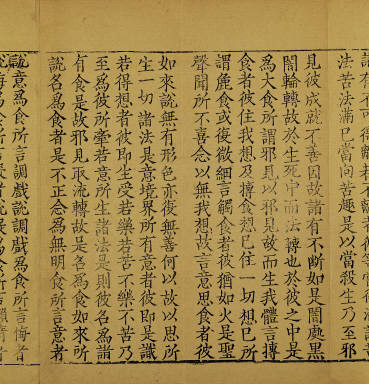 法苦法滿已當向苦趣是以當殺生乃至邪
見彼成就不善因故諸有不斷如是闇處黑
闇輪轉故於生死中而法轉也於彼之中是
爲大食所謂邪見以邪見故而生我體言摶
食者彼住我想及摶食想已住一切想已所
謂麁食或復微細言觸食者彼猶如火是聖
聲聞所不喜念以無我想故言意思食者彼
如來說無有形色亦復無善何以故以思所
生一切諸法是意境界所有意者彼即是識
若得想者彼即生受若樂若苦不樂不苦乃
至爲彼所牽若意所生諸法是則彼名爲諸
有食是故邪見取流轉故是名爲食如來所
說名爲食者是不正念爲無明食所言意者
說意爲食所言調戲說調戲爲食所言悔者